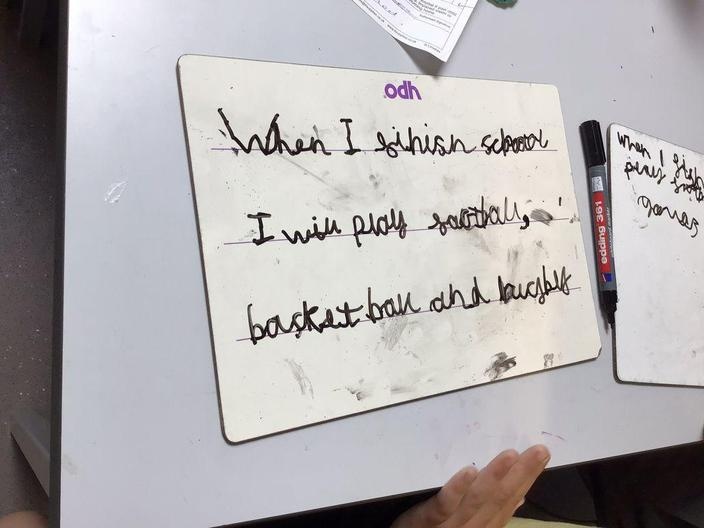 odh
When I finish school
I will play football,
basketball and rugby
edding 361
when I fish
play
games